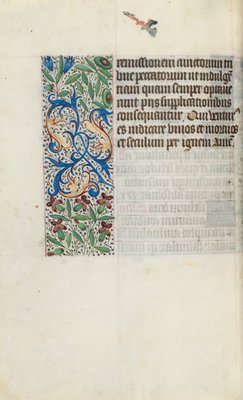 remissionem cunctorum tri
bue peccatorum ut indulgen
ciam quam semper optaue
runt pijs supplicationibus
consequantur. Qui uentur9
es iudicare viuos et mortuos
et seculum per ignem Amē.